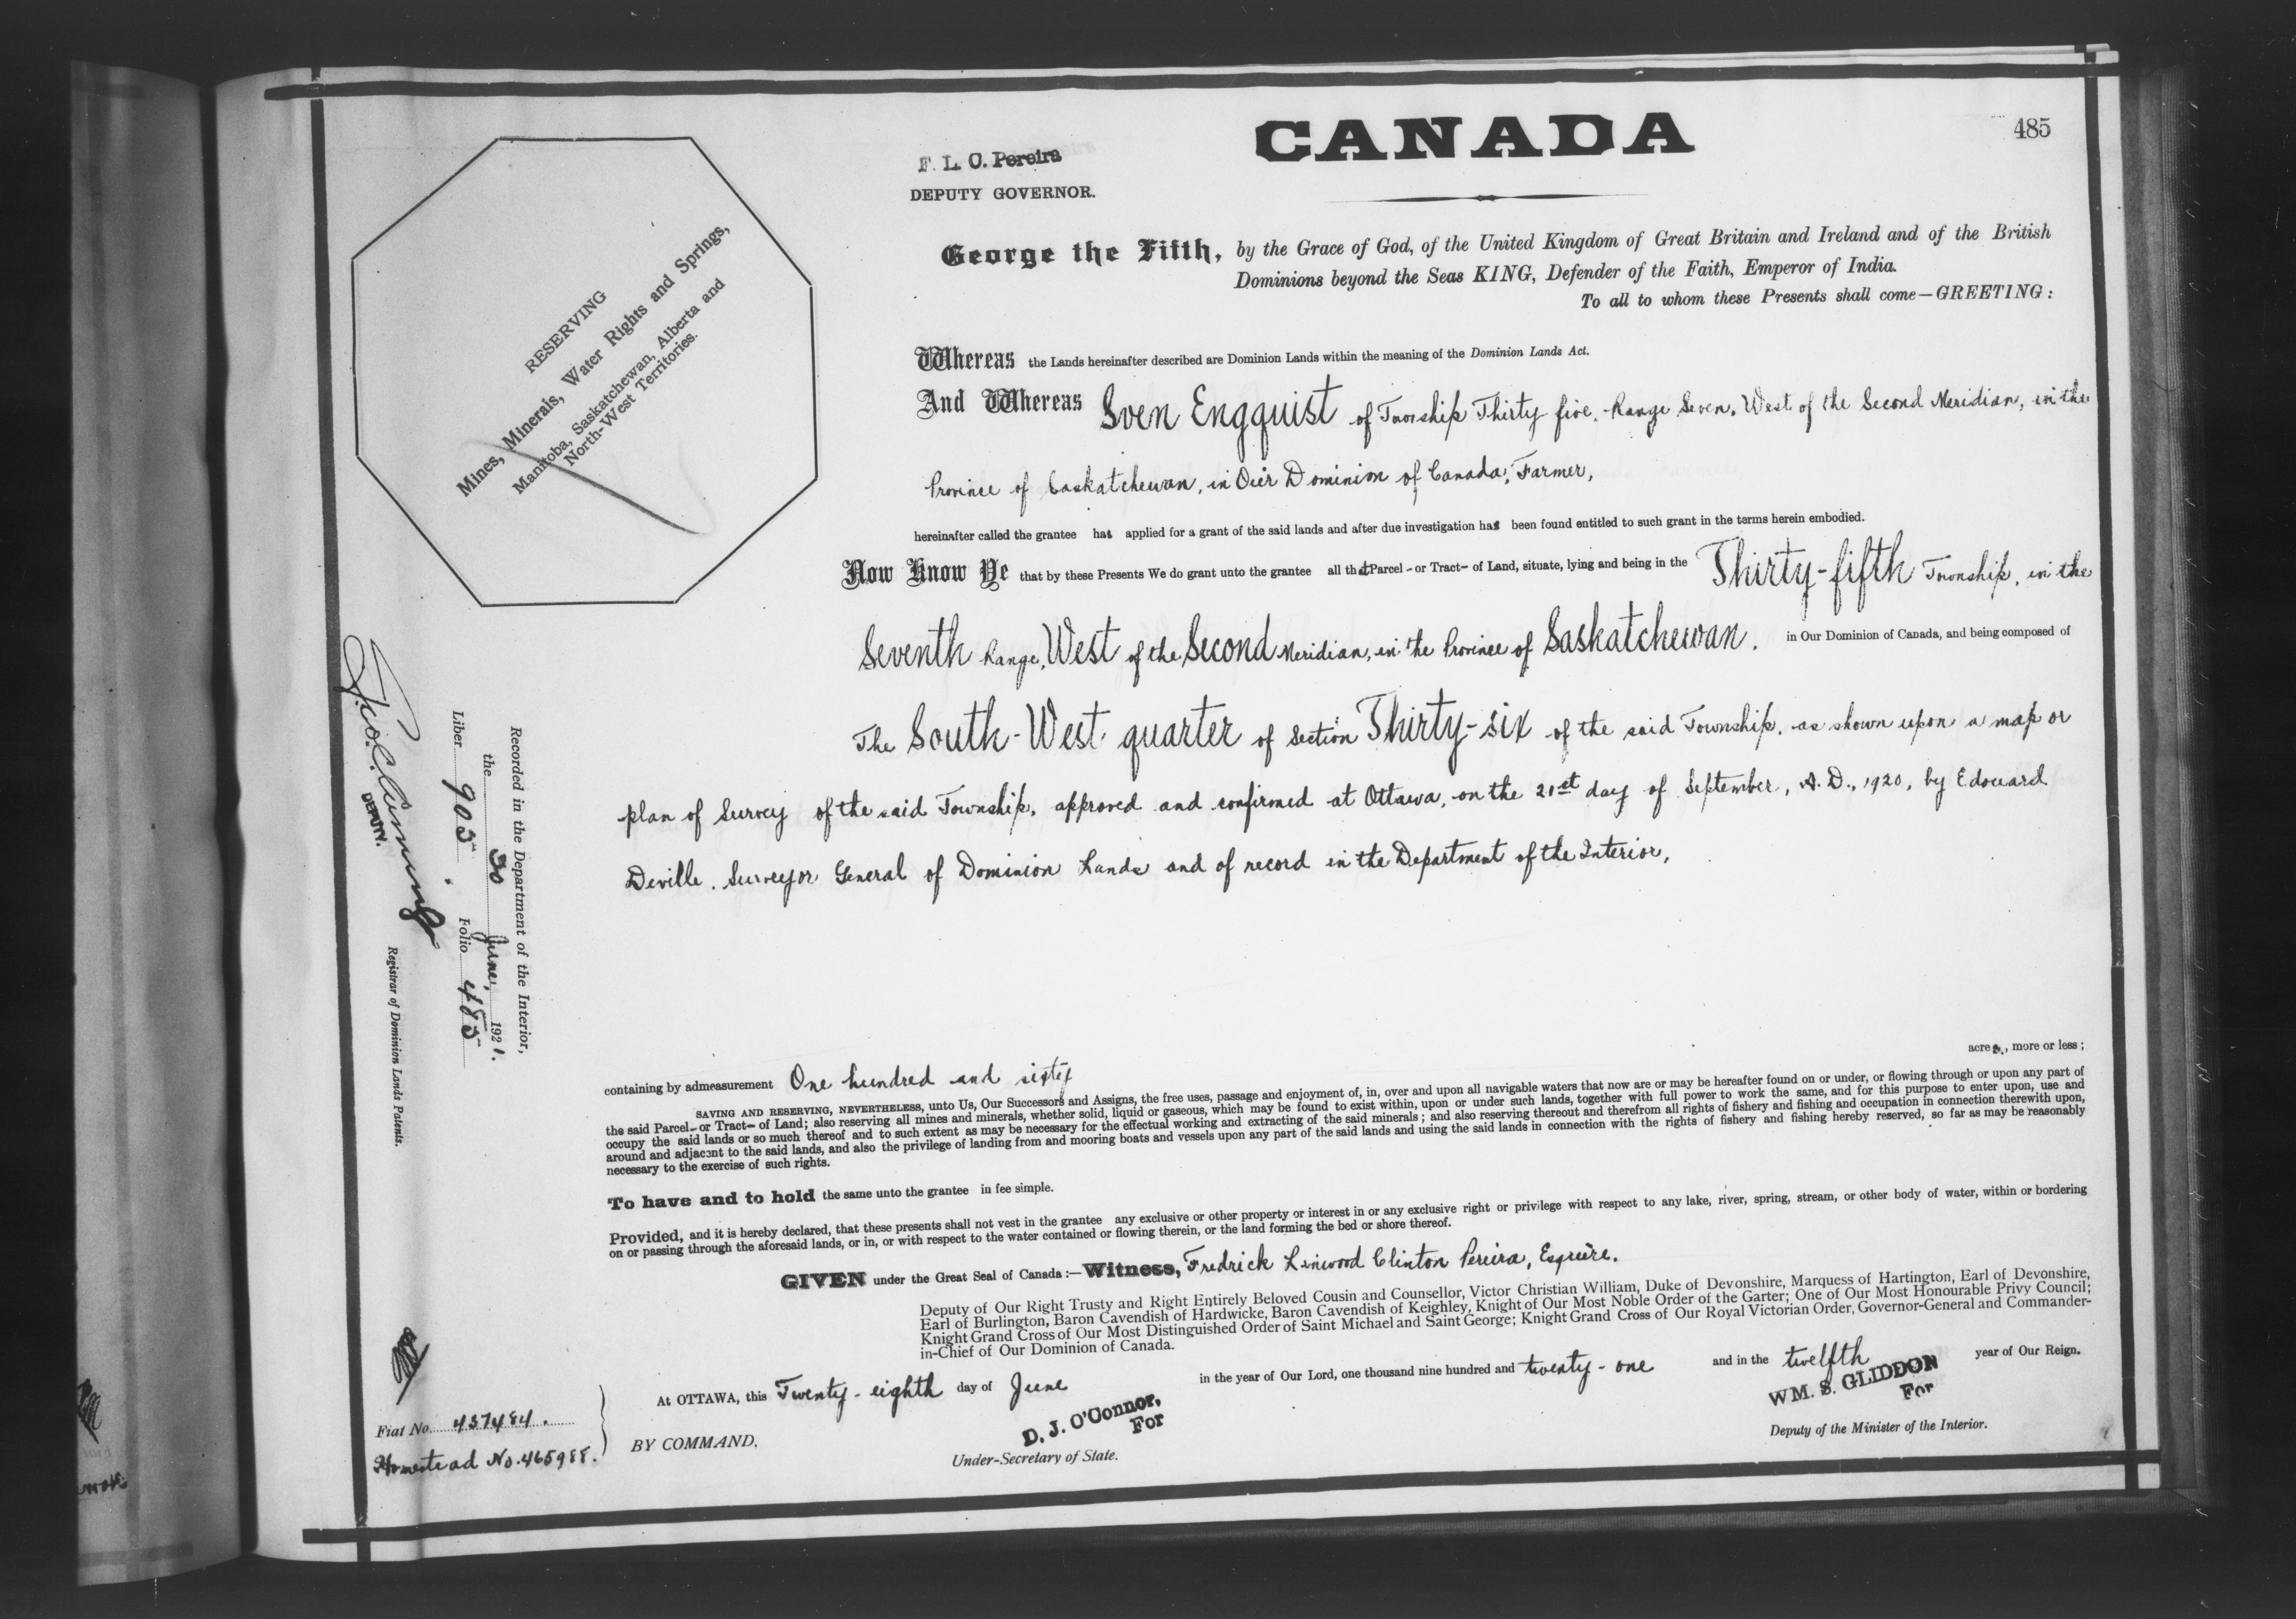 CANADA
485
F. L. C. Pereira
DEPUTY GOVERNOR.
George the Fifth, by the Grace of God, of the United Kingdom of Great Britain and Ireland and of the British
Dominions beyond the Seas KING, Defender of the Faith, Emperor of India.
To all to whom these Presents shall come—GREETING:
RESERVING
Mines, Minerals, Water Rights and Springs,
Manitoba, Saskatchewan, Alberta and
North-West Territories.
Whereas the Lands hereinafter described are Dominion Lands within the meaning of the Dominion Lands Act.
And Whereas Sven Engquist of Township Thirty five, Range Seven, West of the Second Meridian, in the
Province of Saskatchewan, in Our Dominion of Canada, Farmer,
hereinafter called the grantee has applied for a grant of the said lands and after due investigation has been found entitled to such grant in the terms herein embodied.
Now Know Ye that by these Presents We do grant unto the grantee all that Parcel - or Tract - of Land, situate, lying and being in the Thirty-fifth Township, in the
Seventh Range, West of the Second Meridian, in the Province of Saskatchewan, in Our Dominion of Canada, and being composed of
The South-West quarter of Section Thirty-six of the said Township, as shown upon a map or
plan of Survey of the said Township, approved and confirmed at Ottawa, on the 21st day of September, A.D., 1920, by Edouard
Deville, Surveyor General of Dominion Lands and of record in the Department of the Interior,
containing by admeasurement One hundred and sixty acres, more or less;
SAVING AND RESERVING, NEVERTHELESS, unto Us, Our Successors and Assigns, the free uses, passage and enjoyment of, in, over and upon all navigable waters that now are or may be hereafter found on or under, or flowing through or upon any part of
the said Parcel - or Tract - of Land; also reserving all mines and minerals, whether solid, liquid or gaseous, which may be found to exist within, upon or under such lands, together with full power to work the same, and for this purpose to enter upon, use and
occupy the said lands or so much thereof and to such extent as may be necessary for the effectual working and extracting of the said minerals; and also reserving thereout and therefrom all rights of fishery and fishing and occupation in connection therewith upon,
around and adjacent to the said lands, and also the privilege of landing from and mooring boats and vessels upon any part of the said lands and using the said lands in connection with the rights of fishery and fishing hereby reserved, so far as may be reasonably
necessary to the exercise of such rights.
To have and to hold the same unto the grantee in fee simple.
Provided, and it is hereby declared, that these presents shall not vest in the grantee any exclusive or other property or interest in or any exclusive right or privilege with respect to any lake, river, spring, stream, or other body of water, within or bordering
on or passing through the aforesaid lands, or in, or with respect to the water contained or flowing therein, or the land forming the bed or shore thereof.
GIVEN under the Great Seal of Canada:—Witness, Fredrick Linwood Clinton Pereira, Esquire.
Deputy of Our Right Trusty and Right Entirely Beloved Cousin and Counsellor, Victor Christian William, Duke of Devonshire, Marquess of Hartington, Earl of Devonshire,
Earl of Burlington, Baron Cavendish of Hardwicke, Baron Cavendish of Keighley, Knight of Our Most Noble Order of the Garter; One of Our Most Honourable Privy Council;
Knight Grand Cross of Our Most Distinguished Order of Saint Michael and Saint George; Knight Grand Cross of Our Royal Victorian Order, Governor-General and Commander-
in-Chief of Our Dominion of Canada.
At OTTAWA, this Twenty-eighth day of June in the year of Our Lord, one thousand nine hundred and twenty-one and in the twelfth year of Our Reign.
BY COMMAND,
D. J. O'Connor,
For
Under-Secretary of State.
WM. S. GLIDDON
For
Deputy of the Minister of the Interior.
Recorded in the Department of the Interior,
the 30 June, 1921.
Liber 905 Folio 485
DEPUTY.
Registrar of Dominion Lands Patents.
Fiat No. 437484.
Homestead No. 465988.